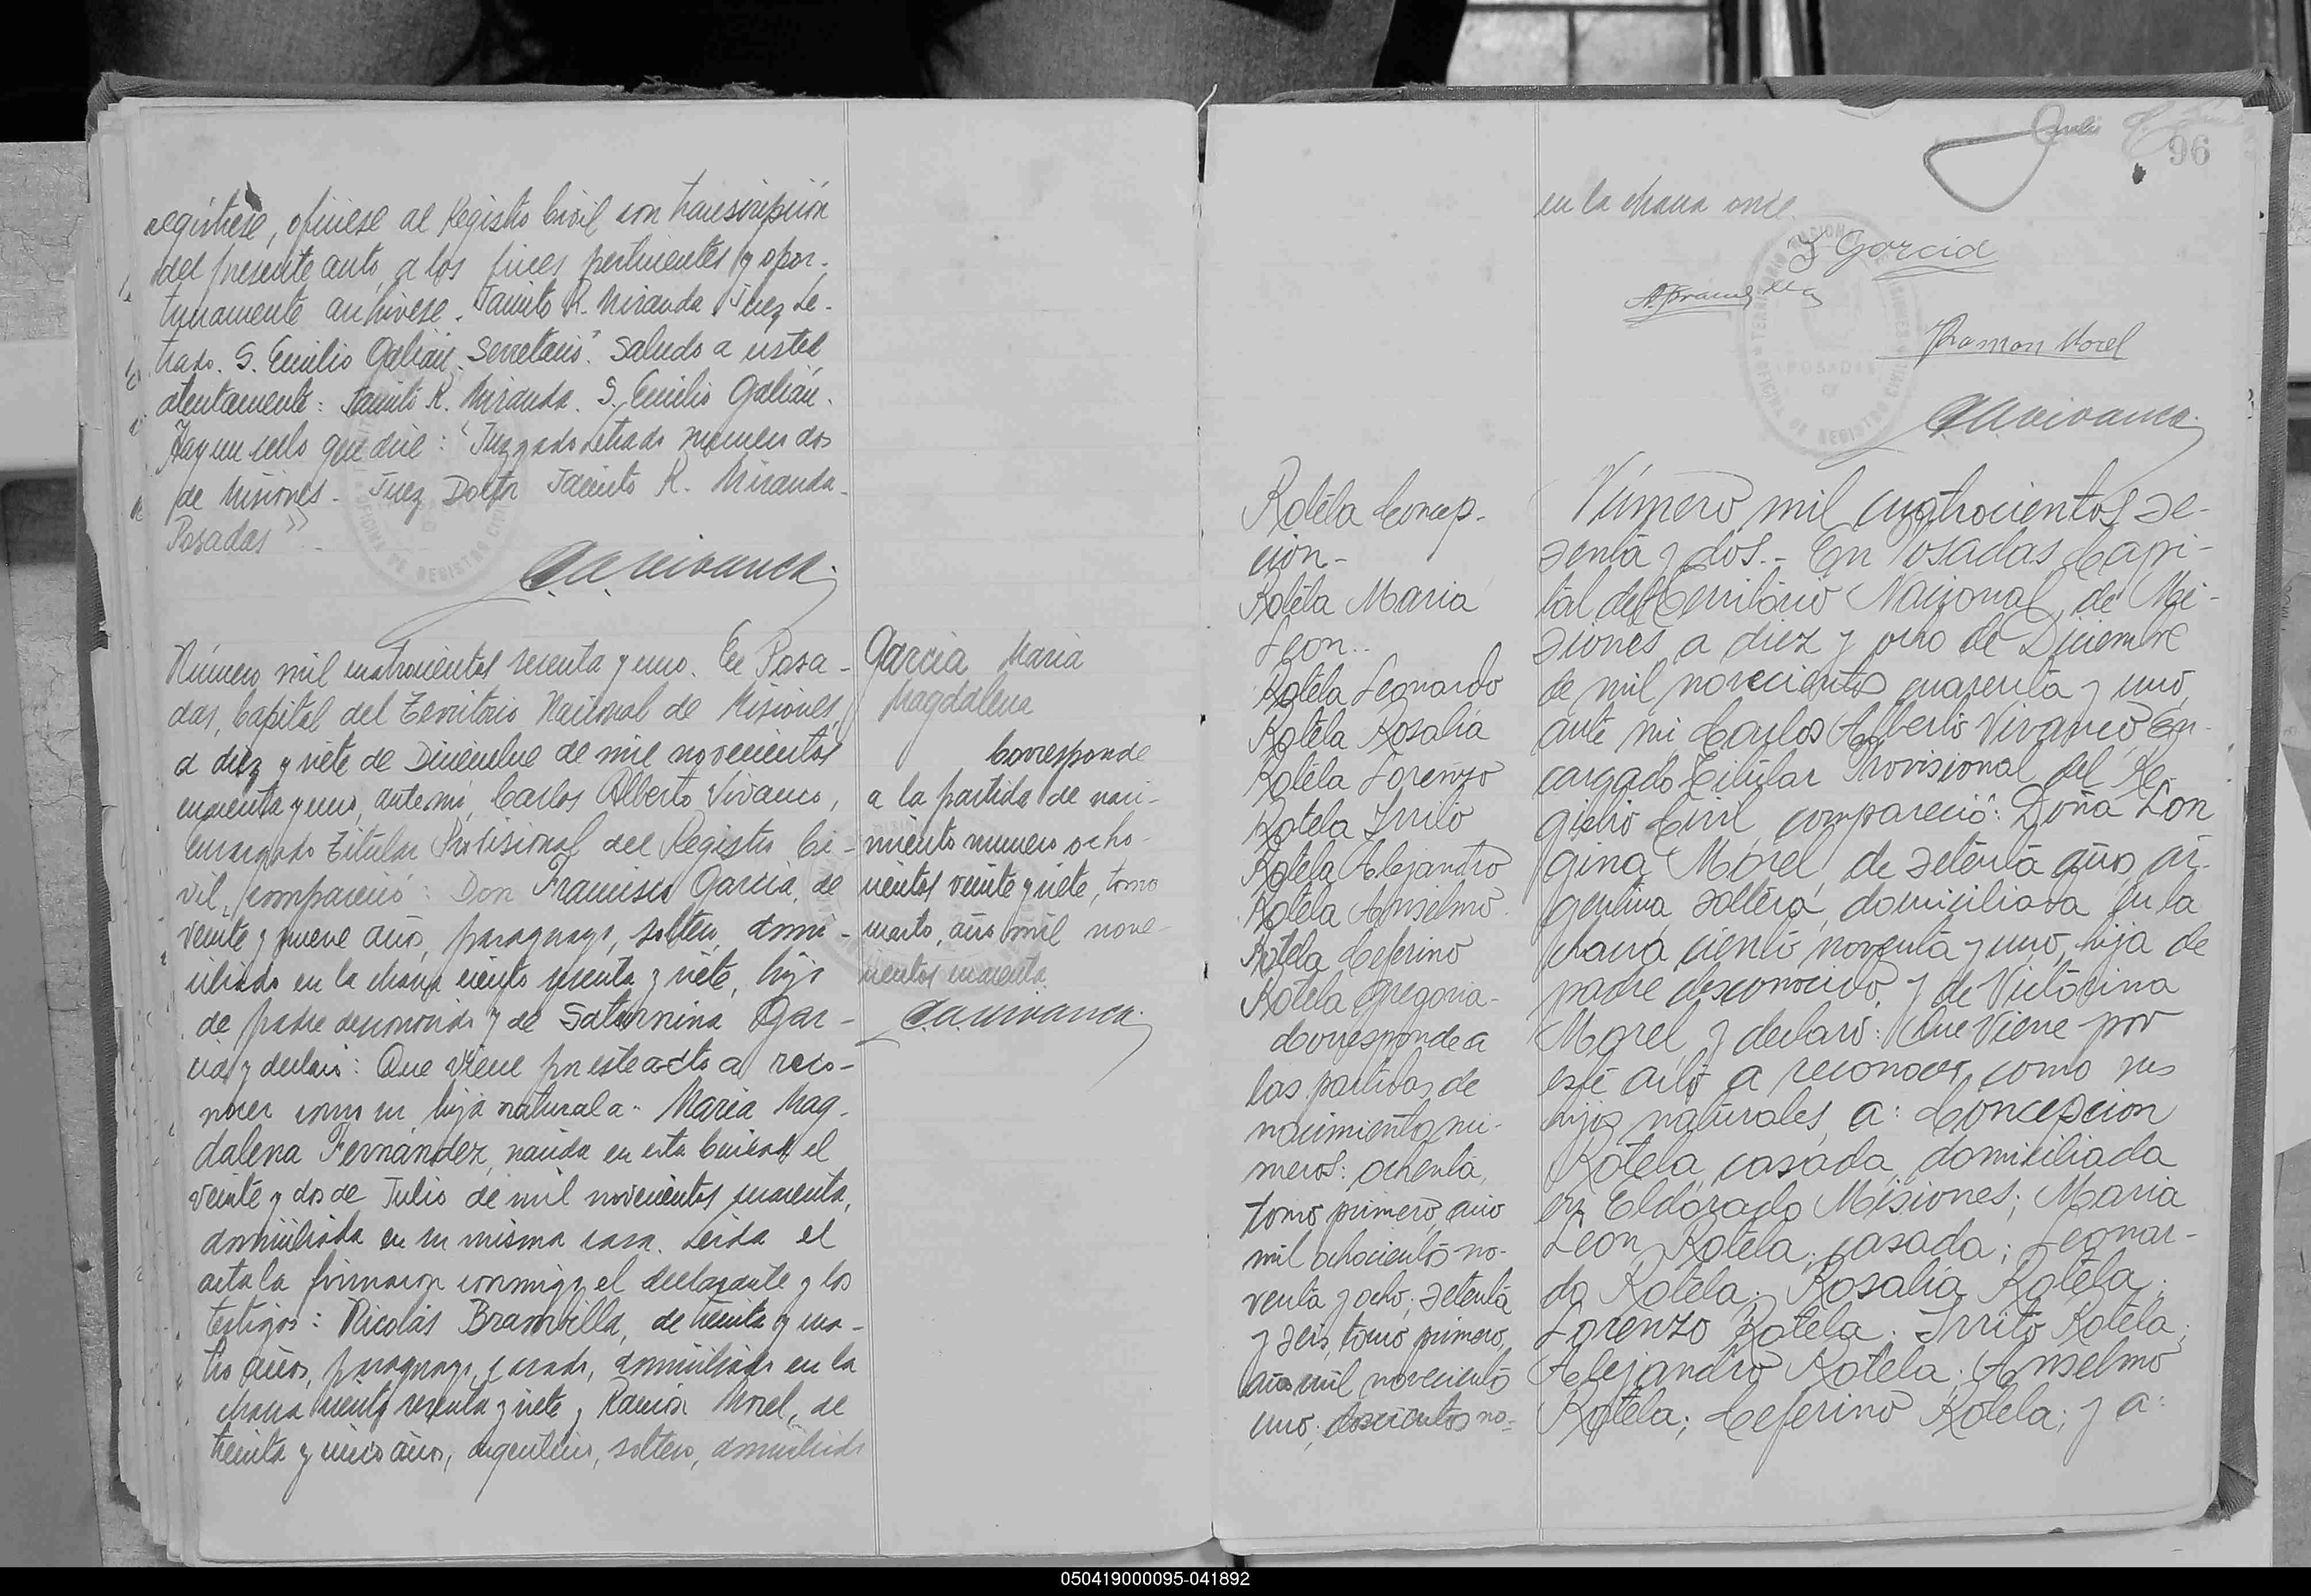 regístrese, ofíciese al Registro Civil con transcripción
del presente auto, a los fines pertinentes y opor-
tunamente archívese. Jacinto R. Miranda Juez Le-
trado. S. Emilio Galián. Secretario". Saludo a usted
atentamente: Jacinto R. Miranda. S. Emilio Galián.
Hay un sello que dice: "Juzgado Letrado número dos
de Misiones - Juez Doctor Jacinto R. Miranda-
Posadas"
C.A. Vivanco
Número mil cuatrocientos sesenta y uno. En Posa-
das, Capital del Territorio Nacional de Misiones,
a diez y siete de Diciembre de mil novecientos
cuarenta y uno, ante mí, Carlos Alberto Vivanco,
Encargado Titular Provisional del Registro Ci-
vil, compareció: Don Francisco García, de
veinte y nueve años, paraguayo, soltero, domi-
ciliado en la chacra ciento sesenta y siete, hijo
de padre desconocido y de Saturnina Gar-
cía y declaró: Que viene por este acto a reco-
nocer como su hija natural a: María Mag-
dalena Fernández, nacida en esta Ciudad el
veinte y dos de Julio de mil novecientos cuarenta,
domiciliada en su misma casa. Leída el
acta la firmaron conmigo, el declarante y los
testigos: Nicolás Brambilla, de treinta y cua-
tro años, paraguayo, casado, domiciliado en la
chacra ciento sesenta y siete y Ramón Morel, de
treinta y cinco años, argentino, soltero, domiciliado
García María
Magdalena
Corresponde
a la partida de naci-
miento número ocho-
cientos veinte y siete, tomo
cuarto, año mil nove-
cientos cuarenta.
C.A. Vivanco
96
en la chacra once.
F Garcia
Ramon Morel
C.A. Vivanco
Rotela Concep-
ción-
Rotela Maria
Leon..
Rotela Leonardo
Rotela Rosalia
Rotela Lorenzo
Rotela Irrito
Rotela Alejandro
Rotela Anselmo
Rotela Ceferino
Rotela Gregoria-
Corresponde a
las partidas de
nacimiento nú-
meros: ochenta,
tomo primero, año
mil ochocientos no-
venta y ocho; setenta
y seis, tomo primero,
año mil novecientos
uno; doscientos no-
Número mil cuatrocientos se-
senta y dos.- En Posadas Capi-
tal del Territorio Nacional de Mi-
siones, a diez y ocho de Diciembre
de mil novecientos cuarenta y uno,
ante mí, Carlos Alberto Vivanco En-
cargado Titular Provisional del Re-
gistro Civil, compareció: Doña Lon
gina Morel, de setenta años, ar-
gentina, soltera, domiciliada en la
chacra ciento noventa y uno, hija de
padre desconocido, y de Victorina
Morel, y declaró: Que viene por
este acto a reconocer, como sus
hijos naturales, a: Concepcion
Rotela, casada, domiciliada
en Eldorado Misiones; Maria
Leon Rotela, casada; Leonar-
do Rotela; Rosalia Rotela;
Lorenzo Rotela; Irrito Rotela;
Alejandro Rotela; Anselmo
Rotela; Ceferino Rotela; y a:
050419000095-041892